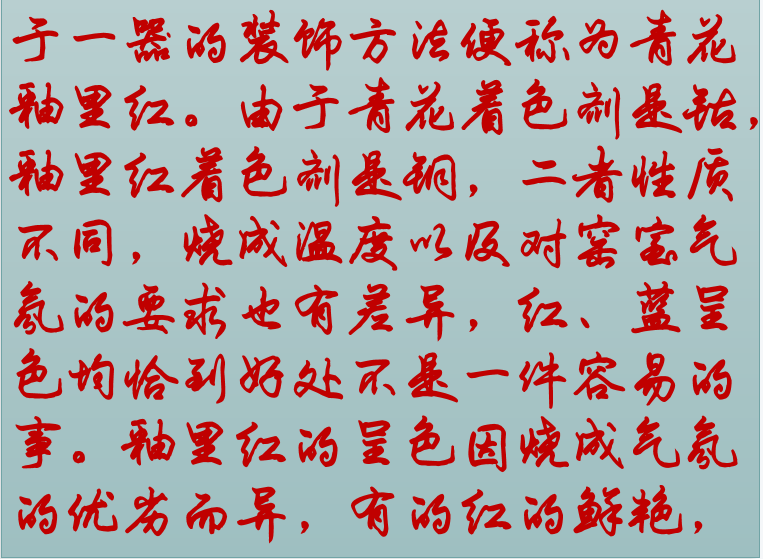 于一器的装饰方法便称为青花
釉里红。由于青花着色剂是钴，
釉里红着色剂是铜，二者性质
不同，烧成温度以及对窑室气
氛的要求也有差异，红、蓝呈
色均恰到好处不是一件容易的
事。釉里红的呈色因烧成气氛
的优劣而异，有的红的鲜艳，